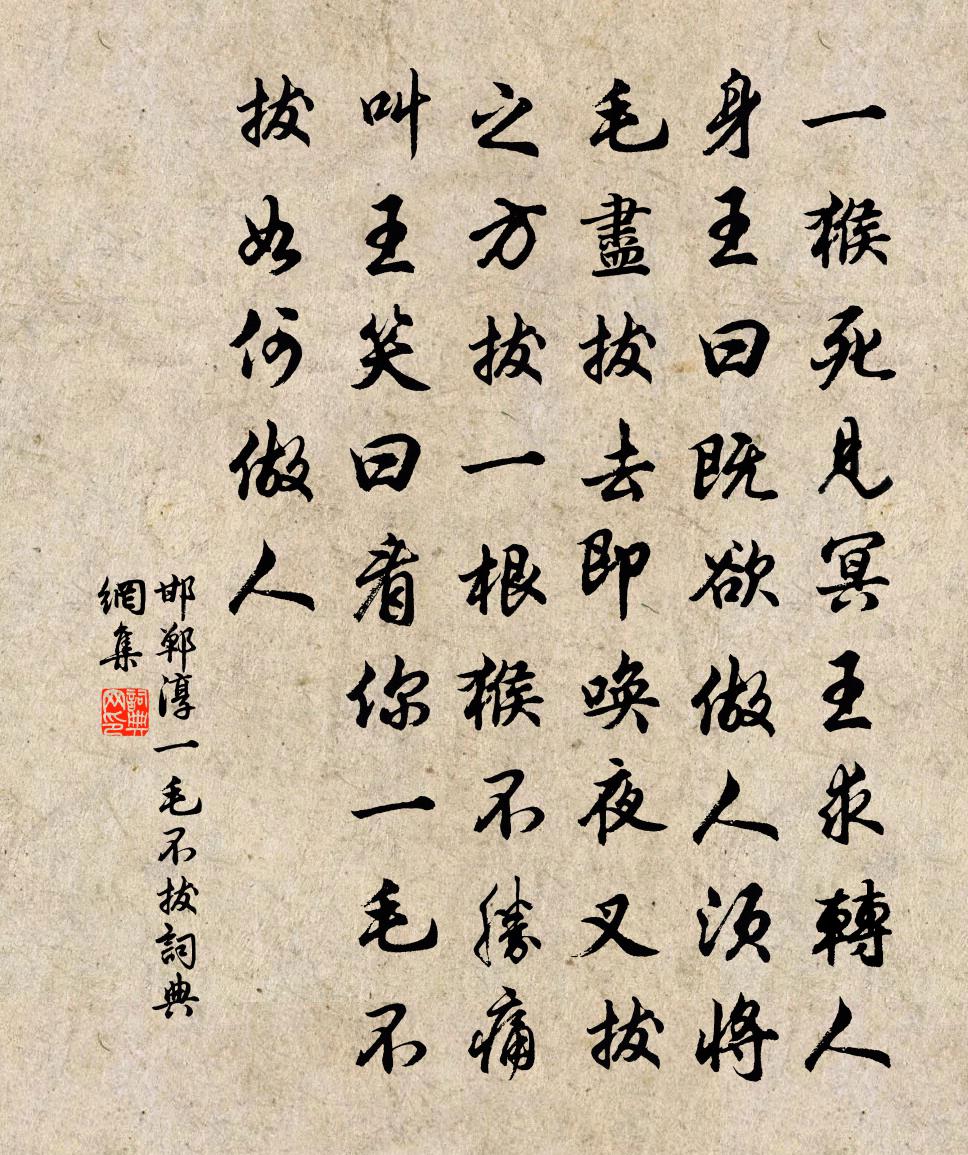 一猴死見冥王求轉人
身王曰既欲做人須將
毛盡拔去即喚夜叉拔
之方拔一根猴不勝痛
叫王笑曰看你一毛不
拔如何做人
邯鄲淳一毛不拔詞典
網集
詞典網印